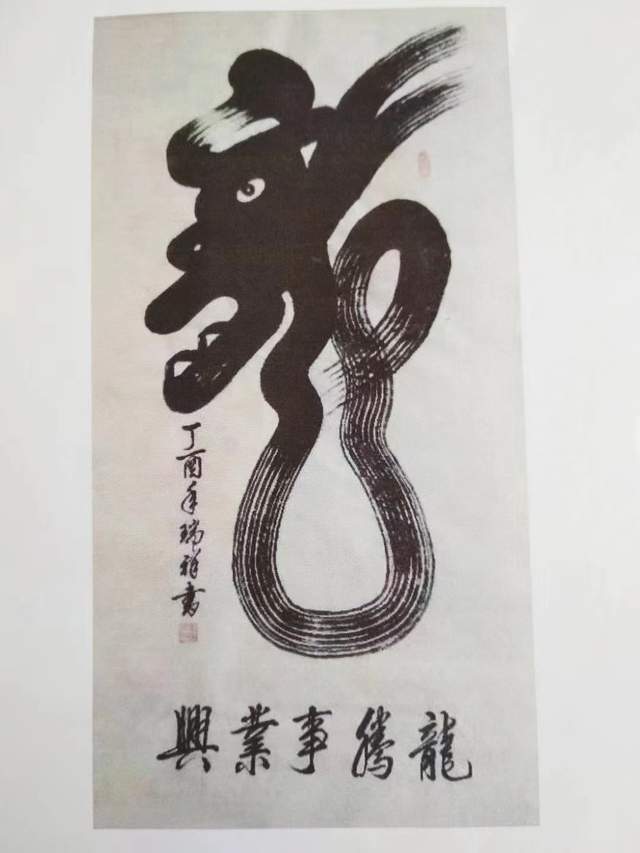 龍
丁酉年瑞祥書
龍騰事業興